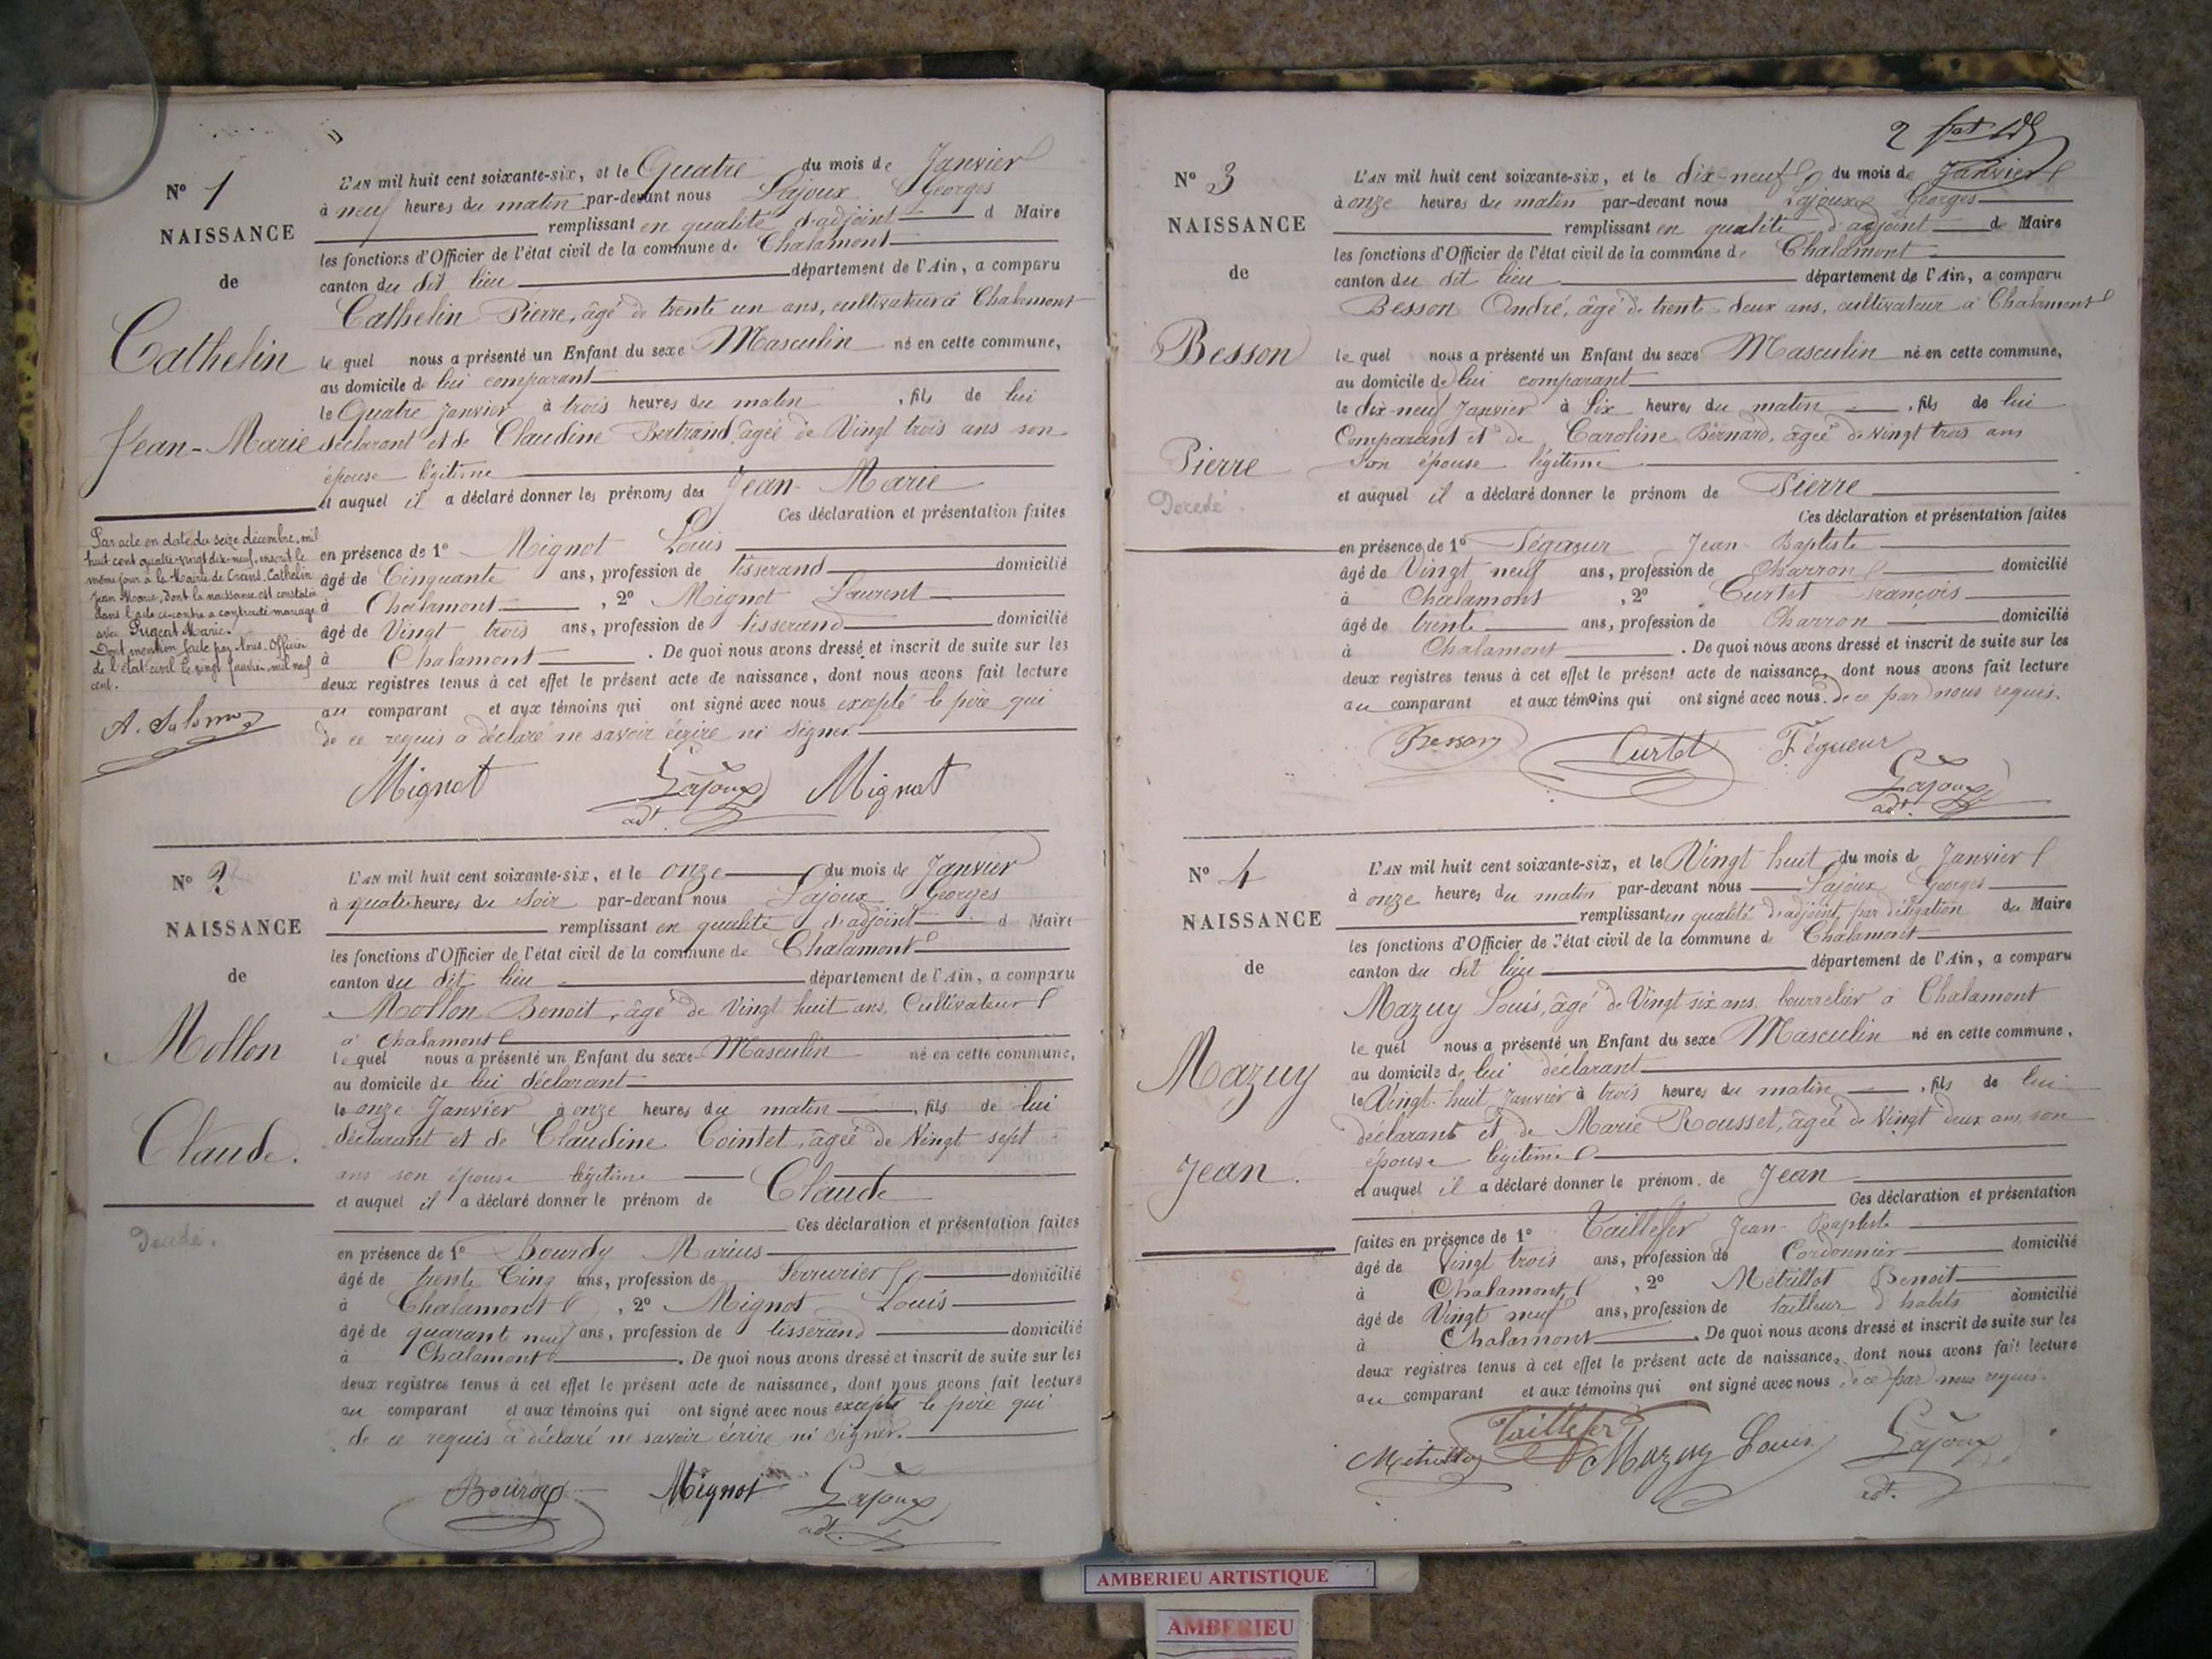 N° 1
NAISSANCE
de
Cathelin
Jean-Marie
Par acte en date du seize décembre, mil
huit cent quatre-vingt-dix-neuf, inscrit le
même jour à la Mairie de Crans, Cathelin
Jean Marie, dont la naissance est constatée
dans l'acte ci-contre a contracté mariage
avec Marie.
Dont mention faite par Nous, Officier
de l'état civil le vingt Janvier, mil neuf
cent.
L'AN mil huit cent soixante-six, et le Quatre du mois de Janvier
à neuf heures du matin par-devant nous Lajoux Georges
remplissant en qualité d'adjoint d Maire
les fonctions d'Officier de l'état civil de la commune de Chalamont
canton du dit lieu département de l'Ain, a comparu
Cathelin Pierre, âgé de trente un ans, cultivateur à Chalamont
le quel nous a présenté un Enfant du sexe Masculin né en cette commune,
au domicile de lui comparant
le Quatre Janvier à trois heures du matin, fils de lui
déclarant et de Claudine Bertrand, âgée de Vingt trois ans son
épouse légitime
et auquel il a déclaré donner les prénoms des Jean-Marie
Ces déclaration et présentation faites
en présence de 1° Mignot Louis
âgé de Cinquante ans, profession de tisserand domicilié
à Chalamont, 2° Mignot Laurent
âgé de Vingt trois ans, profession de tisserand domicilié
à Chalamont. De quoi nous avons dressé et inscrit de suite sur les
deux registres tenus à cet effet le présent acte de naissance, dont nous avons fait lecture
au comparant et aux témoins qui ont signé avec nous excepté le père qui
de ce requis a déclaré ne savoir écrire ni signer.
Mignot Lajoux Mignot
adt.
N° 2
NAISSANCE
de
Mollon
Claude.
Décédé.
L'AN mil huit cent soixante-six, et le onze du mois de Janvier
à quatre heures du soir par-devant nous Lajoux Georges
remplissant en qualité d'adjoint d Maire
les fonctions d'Officier de l'état civil de la commune de Chalamont
canton du dit lieu département de l'Ain, a comparu
Mollon Benoit, âgé de Vingt huit ans, Cultivateur
à Chalamont
le quel nous a présenté un Enfant du sexe Masculin né en cette commune,
au domicile de lui déclarant
le onze Janvier à onze heures du matin, fils de lui
déclarant et de Claudine Cointet, âgée de Vingt sept
ans son épouse légitime
et auquel il a déclaré donner le prénom de Claude
Ces déclaration et présentation faites
en présence de 1° Bourdy Marius
âgé de trente Cinq ans, profession de Serrurier domicilié
à Chalamont, 2° Mignot Louis
âgé de quarante neuf ans, profession de tisserand domicilié
à Chalamont. De quoi nous avons dressé et inscrit de suite sur les
deux registres tenus à cet effet le présent acte de naissance, dont nous avons fait lecture
au comparant et aux témoins qui ont signé avec nous excepté le père qui
de ce requis a déclaré ne savoir écrire ni signer.
Bourdy Mignot Lajoux
adt.
2
N° 3
NAISSANCE
de
Besson
Pierre
Décédé
L'AN mil huit cent soixante-six, et le dix-neuf du mois de Janvier
à onze heures du matin par-devant nous Lajoux Georges
remplissant en qualité d'adjoint de Maire
les fonctions d'Officier de l'état civil de la commune de Chalamont
canton du dit lieu département de l'Ain, a comparu
Besson André, âgé de trente-deux ans, cultivateur à Chalamont
le quel nous a présenté un Enfant du sexe Masculin né en cette commune,
au domicile de lui comparant
le dix-neuf Janvier à Six heures du matin, fils de lui
Comparant et de Caroline Bernard, âgée de vingt trois ans
Son épouse légitime
et auquel il a déclaré donner le prénom de Pierre
Ces déclaration et présentation faites
en présence de 1° Jean-Baptiste
âgé de Vingt neuf ans, profession de Charron domicilié
à Chalamont, 2° Curtet François
âgé de trente ans, profession de Charron domicilié
à Chalamont. De quoi nous avons dressé et inscrit de suite sur les
deux registres tenus à cet effet le présent acte de naissance, dont nous avons fait lecture
au comparant et aux témoins qui ont signé avec nous de ce par nous requis.
Besson Curtet Fégueur
Lajoux
adt.
N° 4
NAISSANCE
de
Mazuy
Jean.
2
L'AN mil huit cent soixante-six, et le Vingt huit du mois d Janvier
à onze heures du matin par-devant nous Lajoux Georges
remplissant en qualité d'adjoint, par délégation du Maire
les fonctions d'Officier de l'état civil de la commune d Chalamont
canton du dit lieu département de l'Ain, a comparu
Mazuy Louis, âgé de Vingt six ans, bourrelier à Chalamont
le quel nous a présenté un Enfant du sexe Masculin né en cette commune,
au domicile de lui déclarant
le Vingt-huit Janvier à trois heures du matin, fils de lui
déclarant et de Marie Rousset, âgée de Vingt deux ans, son
épouse légitime
et auquel il a déclaré donner le prénom de Jean
Ces déclaration et présentation
faites en présence de 1° Taillefer Jean-Baptiste
âgé de Vingt trois ans, profession de Cordonnier domicilié
à Chalamont, 2° Métrillot Benoit
âgé de Vingt neuf ans, profession de tailleur d'habits domicilié
à Chalamont. De quoi nous avons dressé et inscrit de suite sur les
deux registres tenus à cet effet le présent acte de naissance, dont nous avons fait lecture
au comparant et aux témoins qui ont signé avec nous de ce par nous requis.
Taillefer
Métrillot Mazuy Louis Lajoux
adt.
AMBERIEU ARTISTIQUE
AMBERIEU